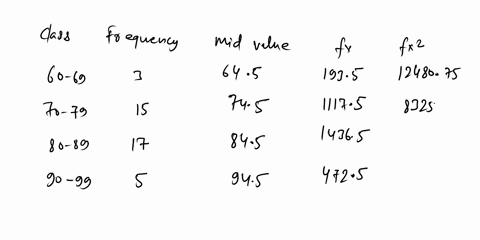 Class Frequency mid value fx fx2
60-69 3 64.5 193.5 12480.75
70-79 15 74.5 1117.5 8325
80-89 17 84.5 1436.5
90-99 5 94.5 472.5